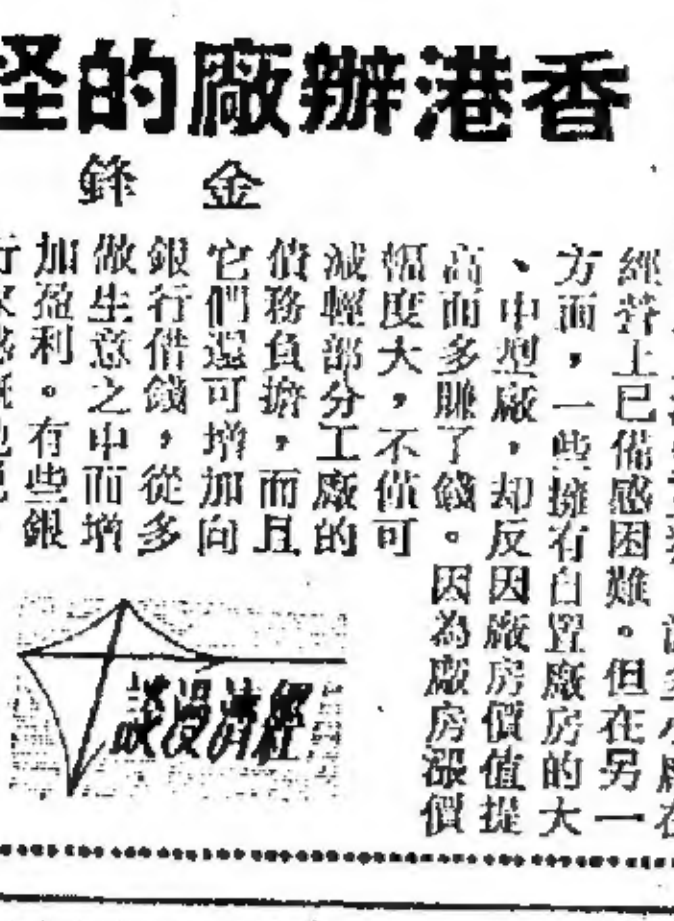 香港辦廠的怪
金鋒
經營上已備感困難。但在另一
方面，一些擁有自置廠房的大
、中型廠，却反因廠房價值提
高而多賺了錢。因為廠房漲價
幅度大，不僅可
減輕部分工廠的
債務負擔，而且
它們還可增加向
銀行借錢，從多
做生意之中而增
加盈利。有些銀
經濟漫談